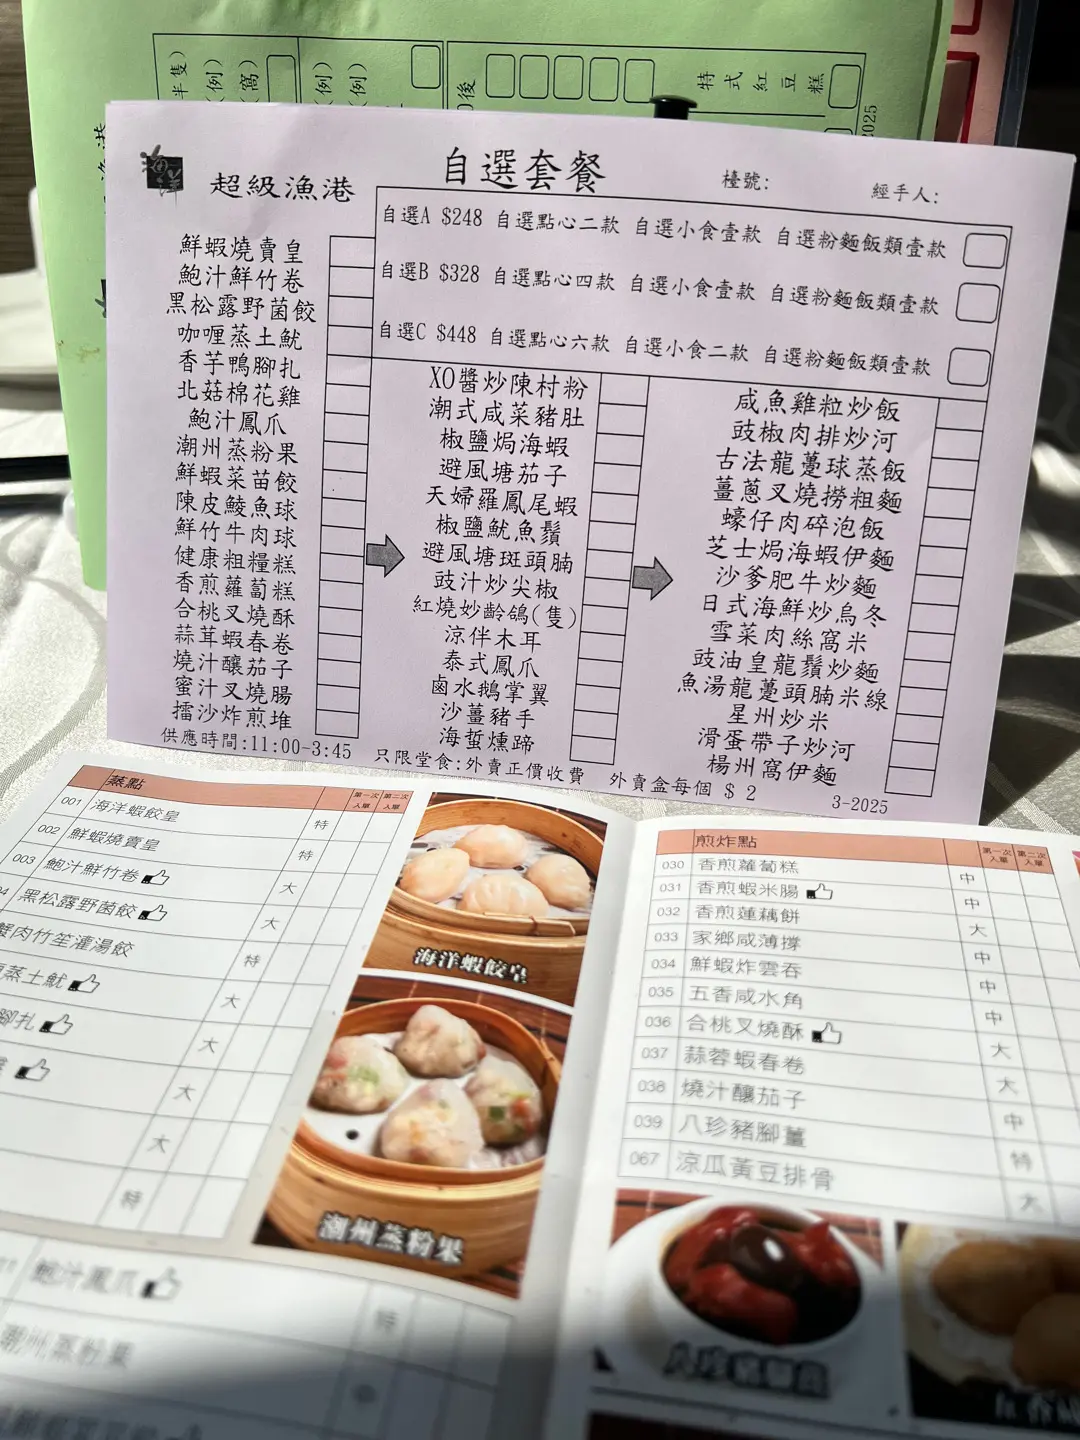 半隻)
(例)
(窩)
(例)
(例)
後
特式紅豆糕
2025
海洋
超級漁港
自選套餐
檯號:
經手人:
自選A $248 自選點心二款 自選小食壹款 自選粉麵飯類壹款
自選B $328 自選點心四款 自選小食壹款 自選粉麵飯類壹款
自選C $448 自選點心六款 自選小食二款 自選粉麵飯類壹款
鮮蝦燒賣皇
鮑汁鮮竹卷
黑松露野菌餃
咖喱蒸土魷
香芋鴨腳扎
北菇棉花雞
鮑汁鳳爪
潮州蒸粉果
鮮蝦菜苗餃
陳皮鯪魚球
鮮竹牛肉球
健康粗糧糕
香煎蘿蔔糕
合桃叉燒酥
蒜茸蝦春卷
燒汁釀茄子
蜜汁叉燒腸
擂沙炸煎堆
XO醬炒陳村粉
潮式咸菜豬肚
椒鹽焗海蝦
避風塘茄子
天婦羅鳳尾蝦
椒鹽魷魚鬚
避風塘斑頭腩
豉汁炒尖椒
紅燒妙齡鴿(隻)
涼伴木耳
泰式鳳爪
鹵水鵝掌翼
沙薑豬手
海蜇燻蹄
咸魚雞粒炒飯
豉椒肉排炒河
古法龍躉球蒸飯
薑蔥叉燒撈粗麵
蠔仔肉碎泡飯
芝士焗海蝦伊麵
沙爹肥牛炒麵
日式海鮮炒烏冬
雪菜肉絲窩米
豉油皇龍鬚炒麵
魚湯龍躉頭腩米線
星州炒米
滑蛋帶子炒河
楊州窩伊麵
供應時間:11:00-3:45 只限堂食:外賣正價收費 外賣盒每個 $ 2
3-2025
蒸點 第一次入單 第二次入單
001 海洋蝦餃皇 特
002 鮮蝦燒賣皇 特
003 鮑汁鮮竹卷 大
黑松露野菌餃 大
蟹肉竹笙灌湯餃 特
蒸土魷 大
腳扎 大
大
大
特
海洋蝦餃皇
潮州蒸粉果
鮑汁鳳爪 特
潮州蒸粉果
煎炸點 第一次入單 第二次入單
030 香煎蘿蔔糕 中
031 香煎蝦米腸 中
032 香煎蓮藕餅 大
033 家鄉咸薄撐 中
034 鮮蝦炸雲吞 中
035 五香咸水角 中
036 合桃叉燒酥 大
037 蒜蓉蝦春卷 大
038 燒汁釀茄子 中
039 八珍豬腳薑 特
067 涼瓜黃豆排骨 大
八珍豬腳薑